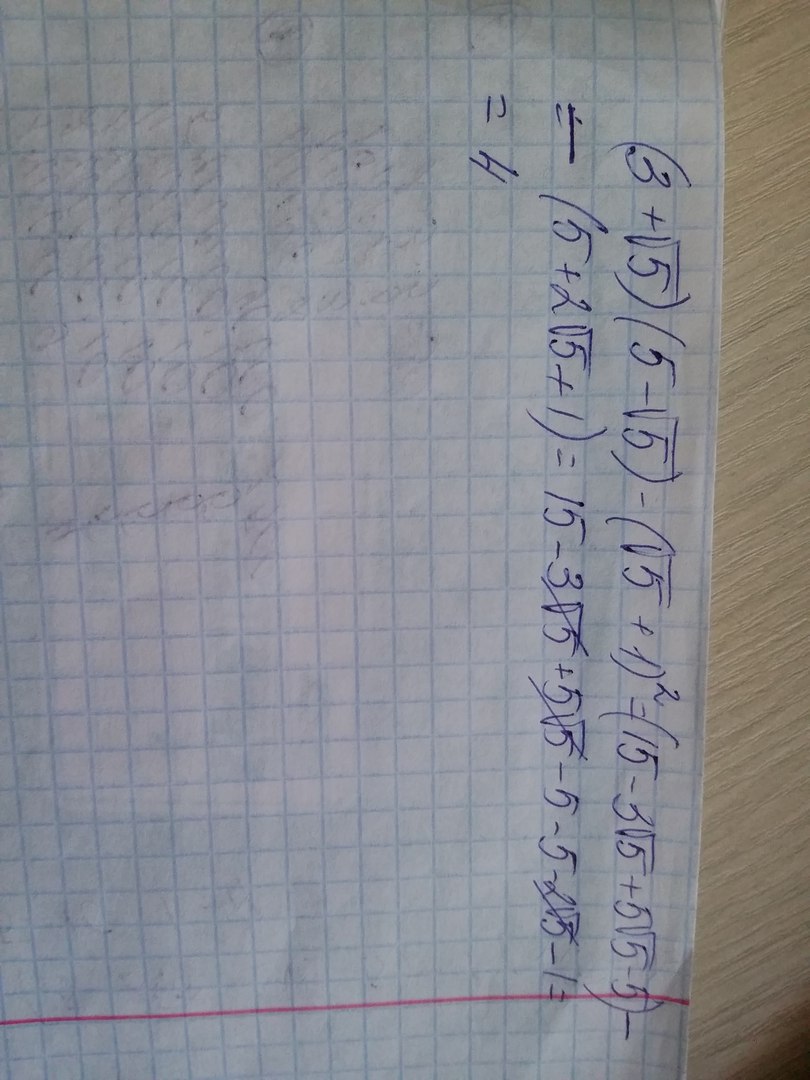 (3+√5)(5-√5)-(√5+1)²=(15-3√5+5√5-5)-
-(5+2√5+1)=15-3√5+5√5-5-5-2√5-1=
=4